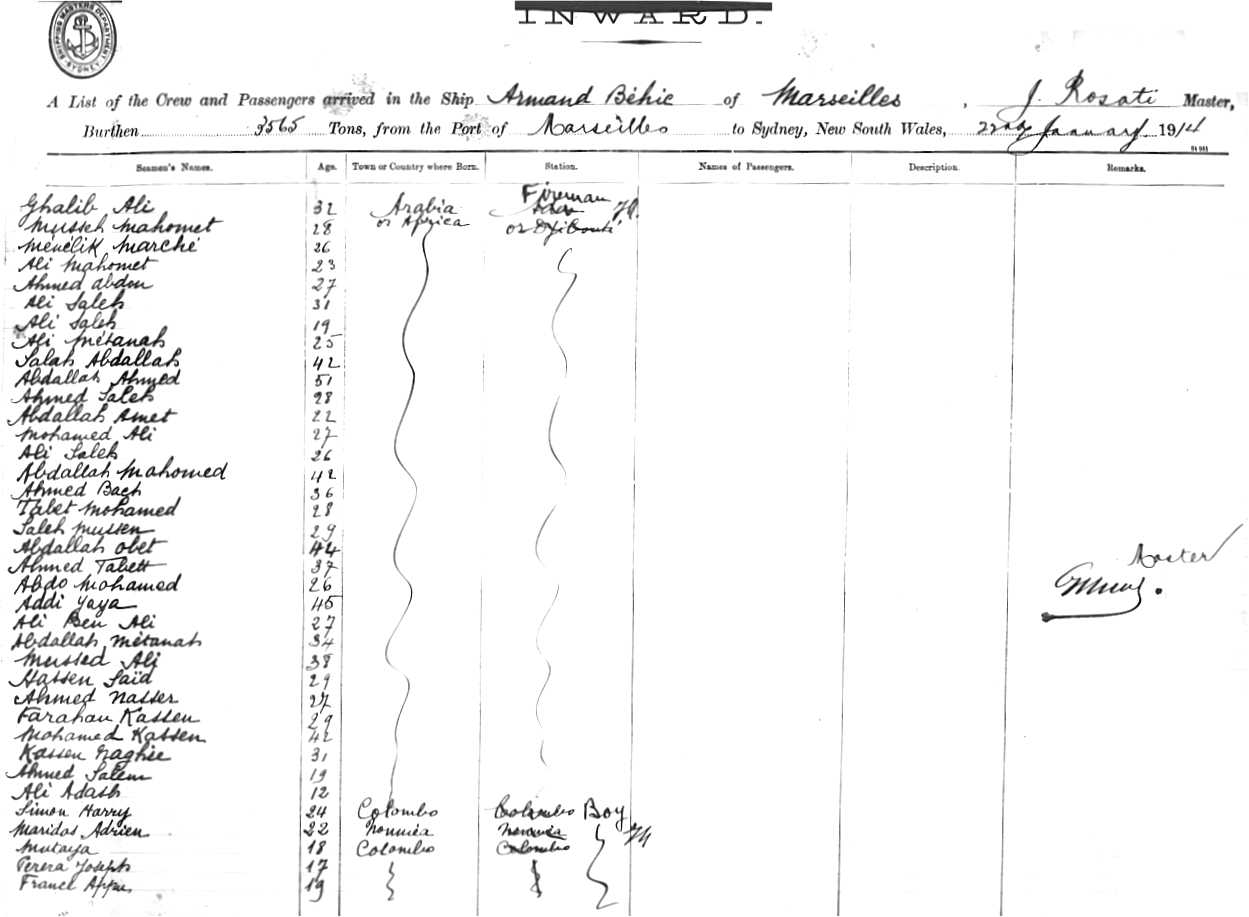 SHIPPING MASTERS DEPARTMENT
SYDNEY
INWARD.
A List of the Crew and Passengers arrived in the Ship Armand Béhic of Marseilles, J. Rosati Master,
Burthen 3565 Tons, from the Port of Marseilles to Sydney, New South Wales, 22nd January 1914
Seamen's Names. Age. Town or Country where Born. Station. Names of Passengers. Description. Remarks.
Fireman
Ghalib Ali 32 Arabia
Musseh Mahomet 28 or Africa or Djibouti
Ménélik Marché 26
Ali Mahomet 23
Ahmed abdou 27
Ali Saleh 31
Ali Saleh 19
Ali Métanah 25
Salah Abdallah 42
Abdallah Ahmed 51
Ahmed Saleh 28
Abdallah Amet 22
Mohamed Ali 27
Ali Saleh 26
Abdallah Mahomed 42
Ahmed Bach 36
Tabet Mohamed 28
Saleh Mussen 29
Abdallah Obet 44 Master
Ahmed Tabett 37
Abdo Mohamed 26
Addi Yaya 45
Ali Ben Ali 27
Abdallah Métanah 34
Mussed Ali 38
Hassen Saïd 29
Ahmed Nasser 27
Farahan Kassen 29
Mohamed Kassen 42
Kassen Naghie 31
Ahmed Salem 19
Ali Adash 12
Simon Harry 24 Colombo Colombo Boy
Maridas Adrien 22 Nouméa Nouméa
Mutaya 18 Colombo Colombo
Perera Joseph 17
Franci Appu 19